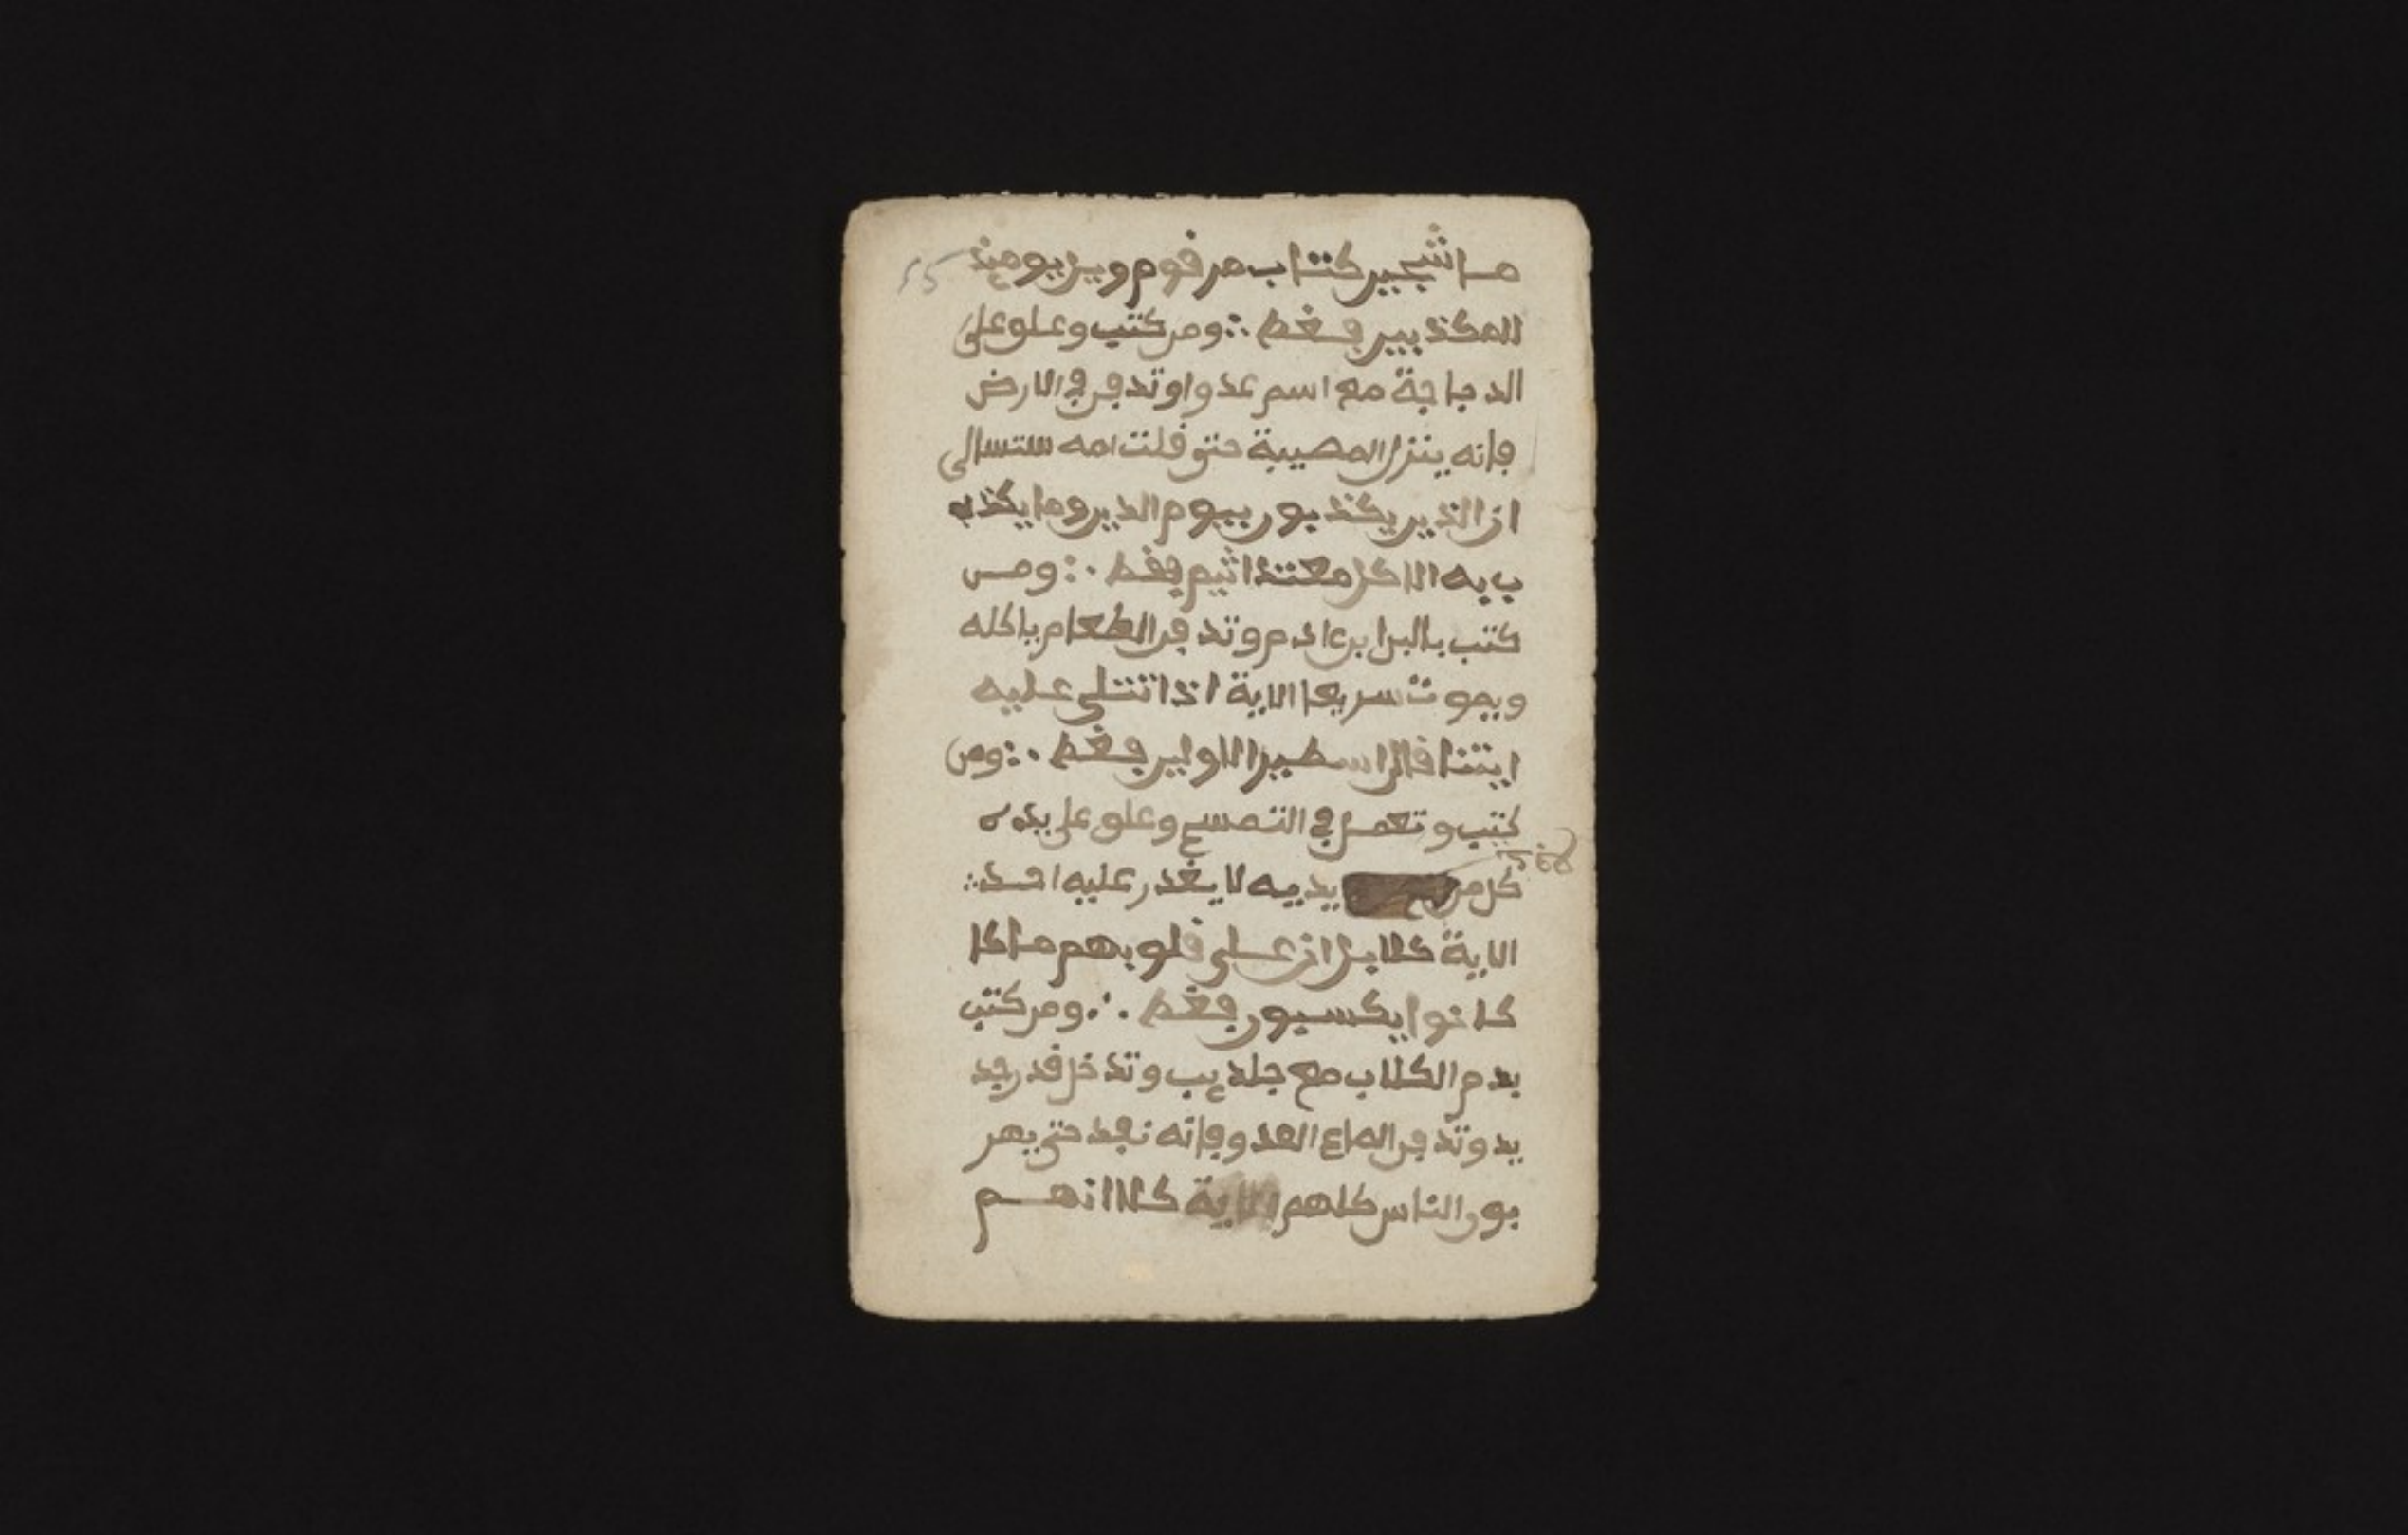 ما شجير كتاب مرقوم ويل يوميذ 55
المكذبين فغط ∴ ومن كتب وعلو على
الدجاجة مع اسم عدوا وتدفن في الارض
فانه ينزل المصيبة حتى قلت امه ستسالى
از الذين يكذبون بيوم الدين وما يكذب
ب به الا كل معتد اثيم فغط ∴ ومن
كتب بالبرا بن ءادم وتدفن الطعام ياكله
ويموت سريعا الاية اذا تتلى عليه
ايتنا قال اسطير الاولين فغط ∴ ومن
كتب وتعمل في التمسح وعلو على يده
كل من يديه لا يغدر عليه احد ∴
الاية كلا بل ازعلى قلوبهم ما كا
كانوا يكسبون فغط ∴ ومن كتب
بدم الكلاب مع جلد يب وتدخل قد رجد
يد وتدفن الماع العدو فانه نجد حتى يهر
بون الناس كلهم الاية كلا انهم